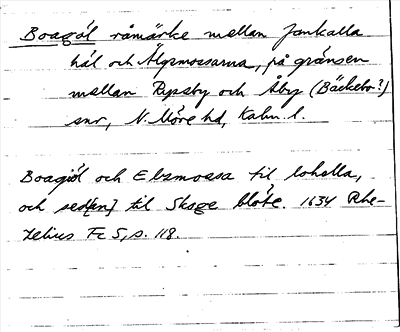 Boagöl råmärke mellan Jankalla
hål och Älgsmossarna, på gränsen
mellan Ryssby och Åby (Bäckebo?)
snr, N. Möre hd, Kalm. l.
Boagöl och Elzmossa til lohella,
och sed[an] til Skoge blöte. 1634 Rhe-
zelius Fc 5, s. 118.